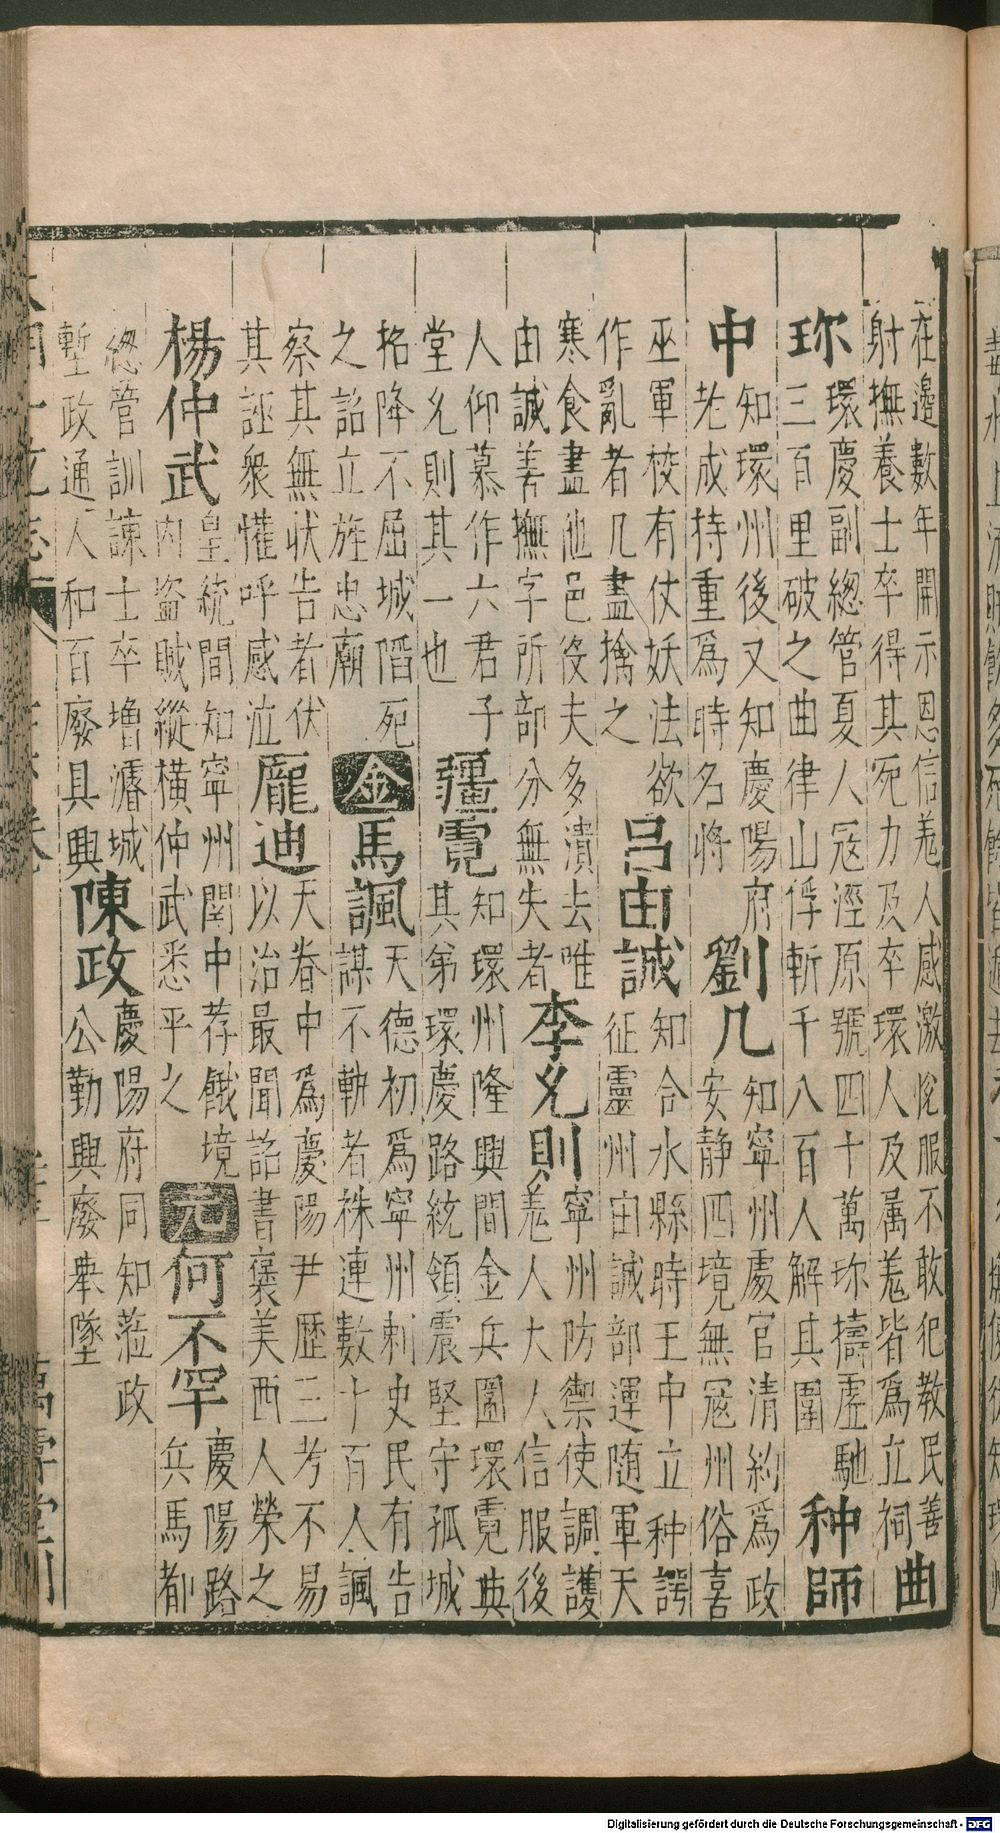 在邊數年開示恩信羗人感激恱服不敢犯教民善射撫養士卒得其死力及卒環人及属羗皆爲立祠曲
珎環慶副總管夏人冦涇原號四十萬珎擣虛馳三百里破之曲律山俘斬千八百人解其圍种師
中知環州後又知慶陽府老成持重爲時名將劉几知寧州處官清約爲政安静四境無冦州俗喜
巫軍校有仗妖法欲作亂者几盡擒之吕由誠知合水縣時王中立种諤征靈州由誠部運随軍天
寒食盡他邑役夫多潰去唯由誠善撫字所部分無失者李㕙則寧州防禦使調護羗人大人信服後
人仰慕作六君子堂㕙則其一也疆霓知環州隆興間金兵圍環霓與其弟環慶路統領震堅守孤城
拓降不屈城陷死之詔立旌忠廟金馬諷天德初爲寧州刺史民有告謀不軌者株連數十百人諷
察其無状告者伏其誣衆懽呼感泣龎迪天眷中爲慶陽尹歴三考不易以治最聞詔書褒美西人榮之
楊仲武皇統間知寧州関中荐餓境内盗賊縱横仲武悉平之元何不罕慶陽路兵馬都
總管訓諫士卒增濬城塹政通人和百廢具興陳政慶陽府同知蒞政公勤興廢舉墜
Digitalisierung gefördert durch die Deutsche Forschungsgemeinschaft - DFG